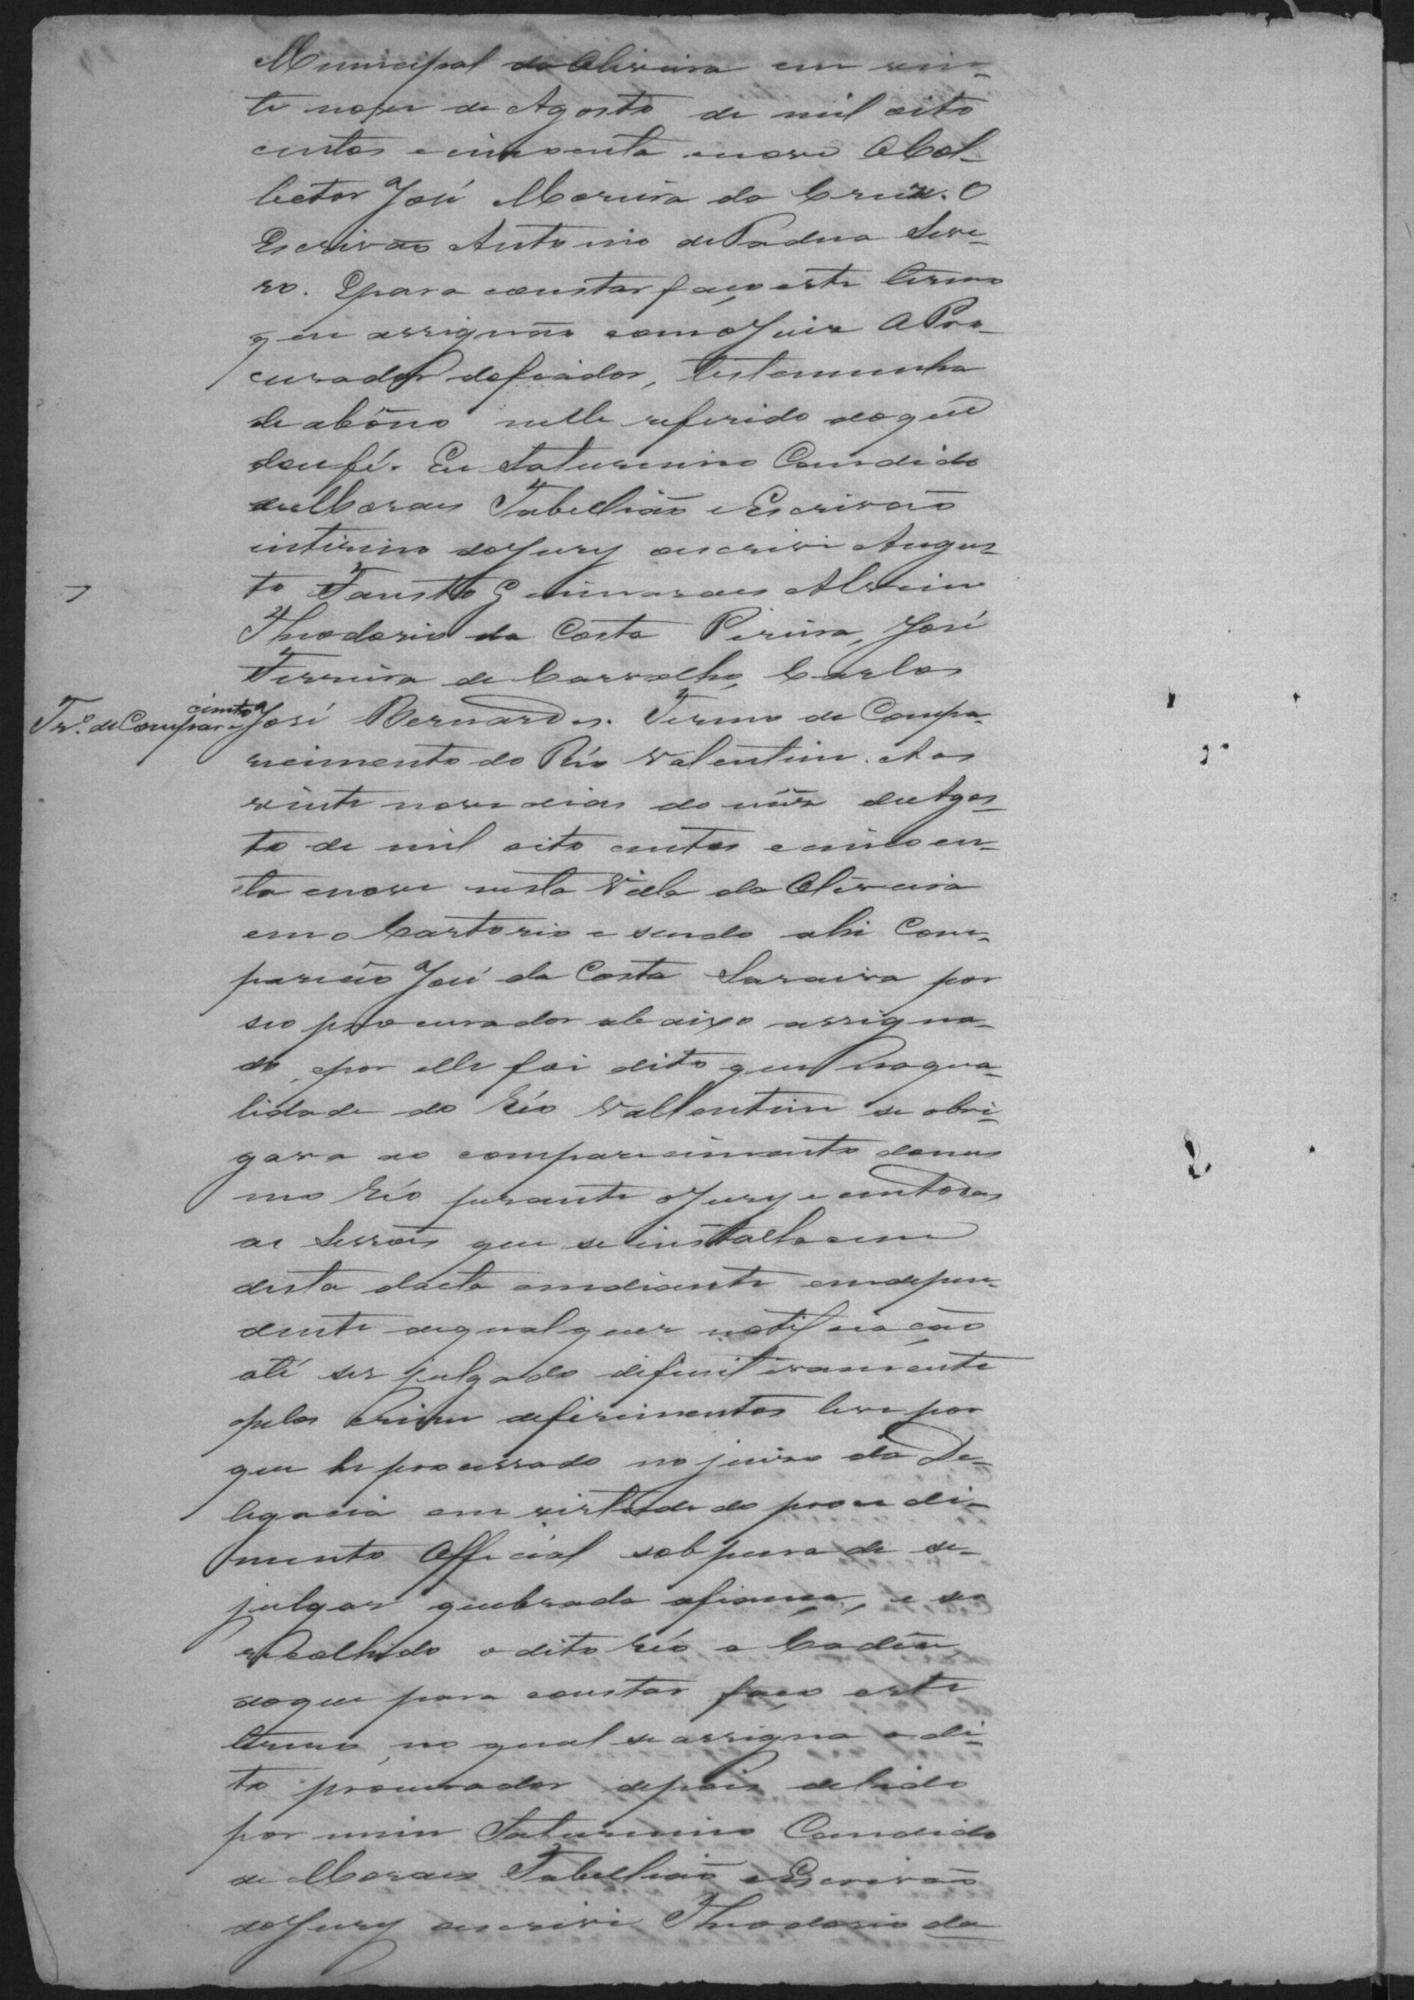 Municipal da Oliveira em vin-
te nove de Agosto de mil oito
centos e cincoenta e nove O Col-
lector José Moreira da Cruz. O
Escrivão Antonio de Padua Seve-
ro. E para constar faço este termo
que assignão como Juiz o Pro-
curador do fiador, testemunha
de abôno nelle referido do que
dou fé. Eu Saturnino Candido
de Moraes Tabellião e Escrivão
interino do Jury o escrivi Augus-
to Fausto Guimaraes Alvim
Theodorio da Costa Pereira, José
Ferreira de Carvalho, Carlos
Tr.º de Comparecimto José Bernardes. Termo de Compa-
recimento do Réo Valentim. Aos
vinte nove dias do mês de Agos-
to de mil oito centos e cincoen-
ta e nove nesta Villa da Oliveira
em o Cartorio e sendo ahi Com-
pareceo José da Costa Saraiva por
seo procurador abaixo assigna-
do, e por elle foi dito que na qua-
lidade do Réo Vallentim se obri-
gava ao comparecimento do mes
mo Réo perante o Jury e em todas
as Sessões que se installarem
desta dacta em diante endepen-
dente de qualquer notificacão
até ser julgado difinitivamente
pelos Crime de ferimentos leve por
que he processado no juizo da De-
legacia em virtude do procedi-
mento Official sob pena de se
julgar quebrada a fiança, e se
recolhido o dito Réo a Cadêa
do que para constar faço este
termo no qual se assigna o di-
to procurador depois de lido
por mim Saturnino Candido
de Moraes Tabellião e Escrivão
do Jury o escrivi Theodorio da